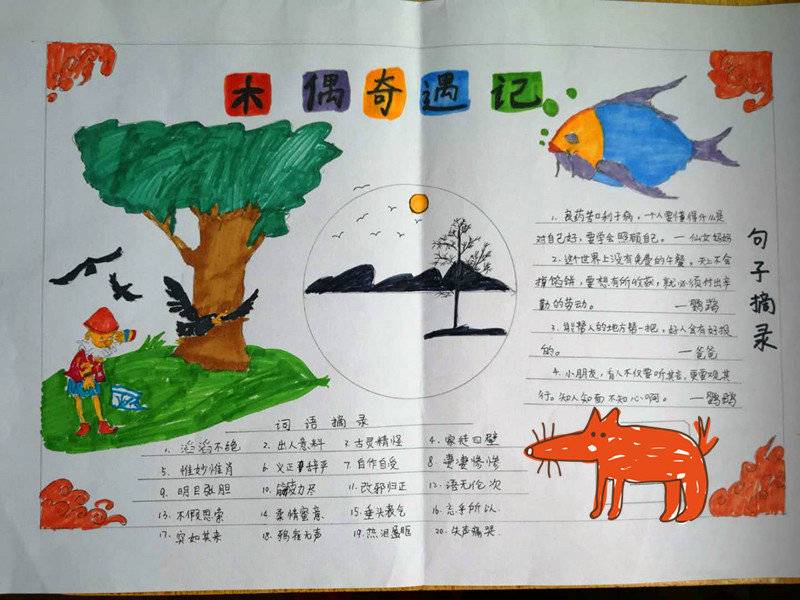 木偶奇遇记
1. 良药苦口利于病，一个人要懂得什么是
对自己好，要学会照顾自己。—仙女妈妈
2. 这个世界上没有免费的午餐。天上不会
掉馅饼，要想有所收获，就必须付出辛
勤的劳动。 —鹦鹉
3. 能帮人的地方帮一把，好人会有好报
的。 —爸爸
4. 小朋友，看人不仅要听其言，更要观其
行。知人知面不知心啊。 —鹦鹉
句子摘录
词语摘录
1. 滔滔不绝 2. 出人意料 3. 古灵精怪 4. 家徒四壁
5. 惟妙惟肖 6. 义正辞严 7. 自作自受 8. 凄凄惨惨
9. 明目张胆 10. 筋疲力尽 11. 改邪归正 12. 语无伦次
13. 不假思索 14. 柔情蜜意 15. 垂头丧气 16. 忘乎所以
17. 突如其来 18. 鸦雀无声 19. 热泪盈眶 20. 失声痛哭